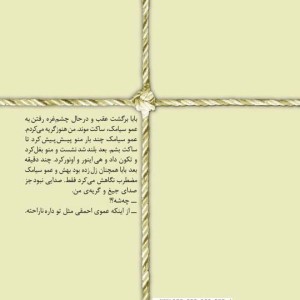 بابا برگشت عقب و درحال چشم‌غره رفتن به
عمو سیامک، ساکت موند. من هنوز گریه می‌کردم.
عمو سیامک چند بار منو پیش‌پیش کرد تا
ساکت بشم. بعد بلند شد نشست و منو بغل کرد
و تکون داد و هی اینور و اونور کرد. چند دقیقه
بعد بابا همچنان زل زده بود بهش و عمو سیامک
مضطرب نگاهش می‌کرد فقط. صدایی نبود جز
صدای جیغ و گریه‌ی من.
ــ چه‌شه؟!
ــ از اینکه عموی احمقی مثل تو داره ناراحته.